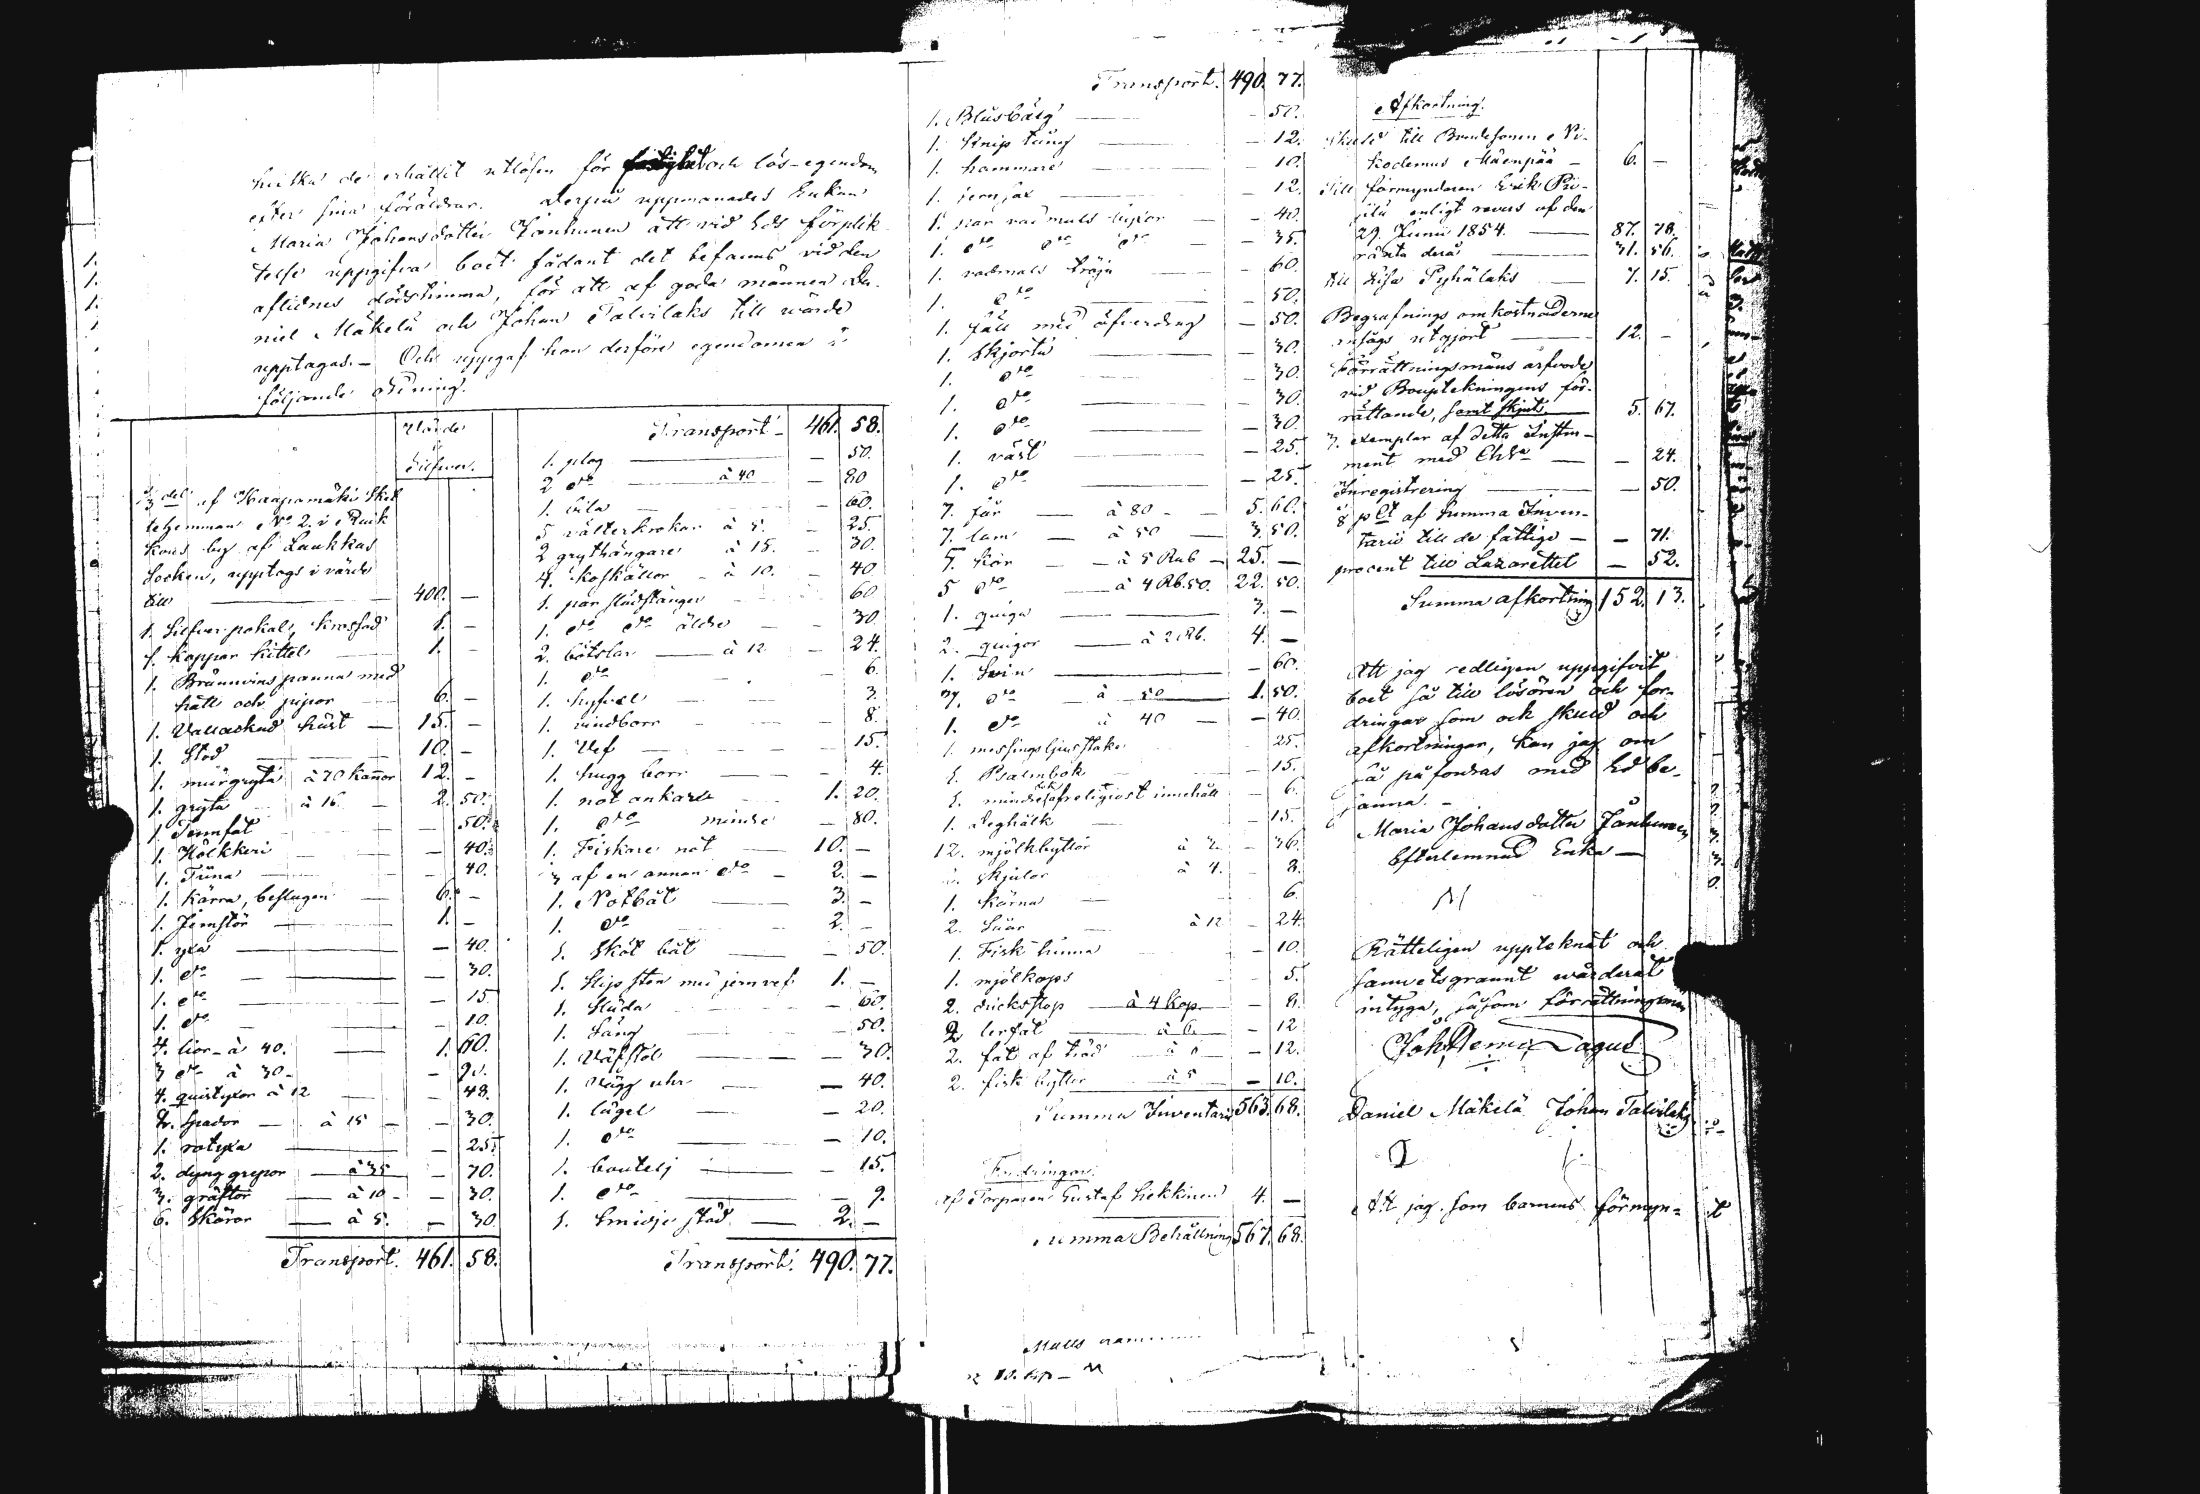 hvilka de erhållit utlösen för och lös-egendom
efter sina föräldrar. derpå uppmanades Enkan
Maria Johansdotter Jänhunen att vid Eds förplik
telse uppgifva boet sådant det befanns vid den
aflidnes dödstimma, för att af goda männen Da-
niel Mäkelä och Johan Talvilaks till värde
upptagas. - Och uppgaf hon derföre egendomen i
följande ordning.
Värde
Silfver.
1/3 del af Haapamäki Skat
tehemman No 2. i Ruik
kous by af Laukkas
Socken, upptogs i värde
till 400. -
1. Silfver pokal, krossad 1. -
1. Koppar kittel 1. -
1. Brännvins panna med
hatt och pipor 6. -
1. Vallackad häst 15. -
1. Stod 10. -
1. murgryta à 70 Kannor 12. -
1. gryta à 16 2. 50.
1 Tennfat 50.
1. Hölkkeri 40.
1. Tina 40.
1. Kärra, beslagen 6. -
1. Jernstör 1. -
1. yxa - 40.
1. do - 30.
1. do - 15
1. do - 10.
4. lior - à 40. 1. 60.
3 do à 30 - 90.
4. quistyxor à 12 48.
2. Spador à 15 - 30.
1. rotyxa - 25
2. dyng grepor à 35 - 70.
3. gräftor à 10 - 30.
6. Skäror à 5. - 30
Transport. 461. 58.
Transport 461. 58.
1. plog - 50.
2 do à 40 - 80
1. bila - 60.
5 välterkrokar à 5. - 25
2 grythängare à 15. - 30.
4. koskällor à 10. - 40
1. par slädstänger 60
1. do do äldre - 30.
2. båtslar à 12 - 24.
1. do 6.
1. hyfvel 3.
1. vindborr 8.
1. Vef 15.
1. hugg borr 4.
1. not ankare 1. 20.
1. do mindre - 80.
1. Fiskare not 10. -
3 af en annan do - 2. -
1. Notbåt 3. -
1. do 2. -
1. Sköt båt - 50.
1. Slip sten med jernvef 1. -
1. Släda 60.
1. Säng 50.
1. Väfstol - 30.
1. Vägg uhr - 40.
1. lägel - 20.
1. do - 10.
1. boutelj - 15.
1. do - 9.
1. Smidje städ 2. -
Transport. 490. 77.
Transport. 490. 77.
1. Blåsbälg - 50.
1. Knip tång - 12.
1. hammare - 10.
1. jern sax - 12.
1. par vadmals byxor - 40.
1. do do do - 35.
1. vadmals tröja - 60.
1. do - 50.
1. fäll med öfverdrag - 50.
1. Skjorta - 30.
1. do - 30.
1. do - 30.
1. do - 30.
1. väst - 25
1. do - 25.
7. får à 80 - 5. 60.
7. lam à 50 3. 50.
5. Kor à 5 Rub - 25. -
5 do à 4 Rb. 50. 22. 50.
1. quiga 3. -
2. quigor à 2 Rb. 4. -
1. Svin - 60.
3. do à 50 1. 50.
1. do à 40 - 40.
1. messings ljusstake 25.
1. Psalmbok - 15.
1. mindre af religiöst innehåll - 6.
1. Deghålk - 15.
12. mjölkbyttor à 3. - 36.
2. Skjulor à 4. 8.
1. Kärna 6.
2. Såar à 12 - 24.
1. Fisk tunna - 10.
1. mjölkaps 5.
2. drickstop à 4 kop. - 8.
2 lerfat à 6. - 12
2. fat af träd à 6 - 12.
2. fisk byttor à 5 - 10.
Summa Inventarii 563. 68.
Fordringar.
af Torparen Gustaf Liekkinen 4. -
Summa Behållning 567. 68.
Afkortning.
Skuld till Brudesonen Ni-
kodemus Mäenpää - 6. -
Till förmyndaren Erik Pii-
pilä enligt revers af den
29. Junii 1854. 87. 78.
ränta derå 31. 56.
till Lisa Pyhälaks 7. 15.
Begrafnings omkostnaderne
ansågs utgjort 12. -
Förrättningsmans arfvode
vid Bouptekningens för-
rättande, samt skjuts 5. 67.
3. exemplar af detta Instru-
ment med Chta - 24.
Inregistrering - 50.
1/8 pCt af Summa Inven-
tarii till de fattige - - 71.
procent till Lazarettet - 52.
Summa afkortning 152. 13.
Att jag redligen uppgifvit
boet så till lösören och for-
dringar som och skuld och
afkortningar, kan jag om
så påfordras med Ed be-
sanna. -
Maria Johansdotter Jänhunen
Efterlemnad Enka -
Rätteligen uppteknat och
samvetsgrannt värderat
intyga, såsom förrättningsman
Daniel Mäkelä Johan Talvilaks
Att jag som barnens förmyn=